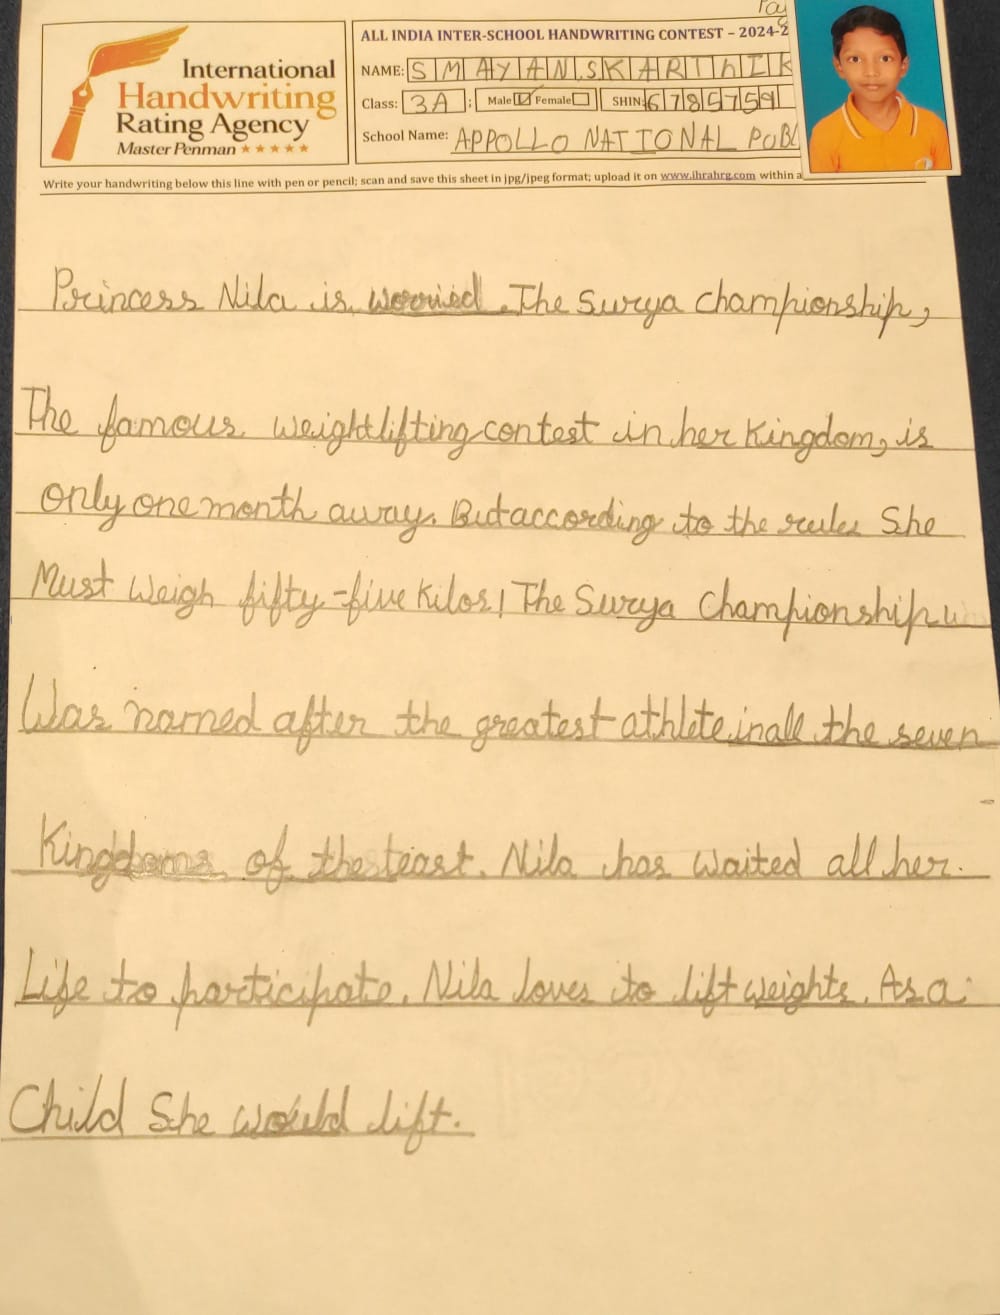 International
Handwriting
Rating Agency
Master Penman
ALL INDIA INTER-SCHOOL HANDWRITING CONTEST – 2024-2
NAME: SMAYAN.SKARThIK
Class: 3A ; Male Female SHIN: 6785759
School Name: APPOLLO NATIONAL PUBL
Write your handwriting below this line with pen or pencil; scan and save this sheet in jpg/jpeg format; upload it on www.ihrahrg.com within a
Princess Nila is worried. The Surya Championship,
The famous weightlifting contest in her Kingdom, is
only one month away. But according to the rules She
Must Weigh fifty-five Kilos! The Surya Championship
Was named after the greatest athlete in all the seven
Kingdoms of the east. Nila has waited all her.
Life to participate. Nila loves to lift weights. As a
Child She would lift.